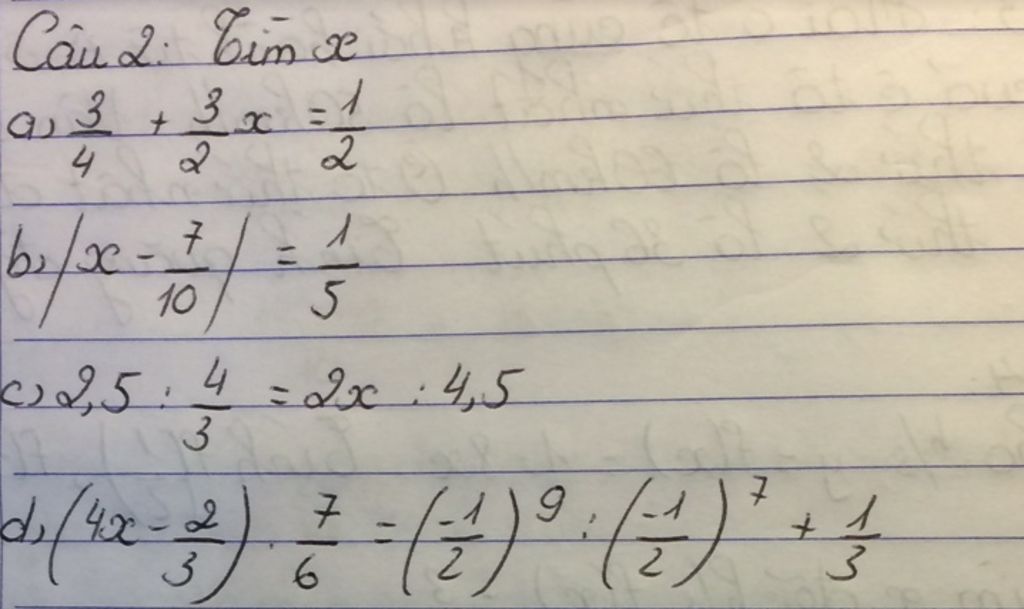 Câu 2: Tìm x
a, 3/4 + 3/2 x = 1/2
b, |x - 7/10| = 1/5
c, 2,5 : 4/3 = 2x : 4,5
d, (4x - 2/3) . 7/6 = (-1/2)^9 : (-1/2)^7 + 1/3